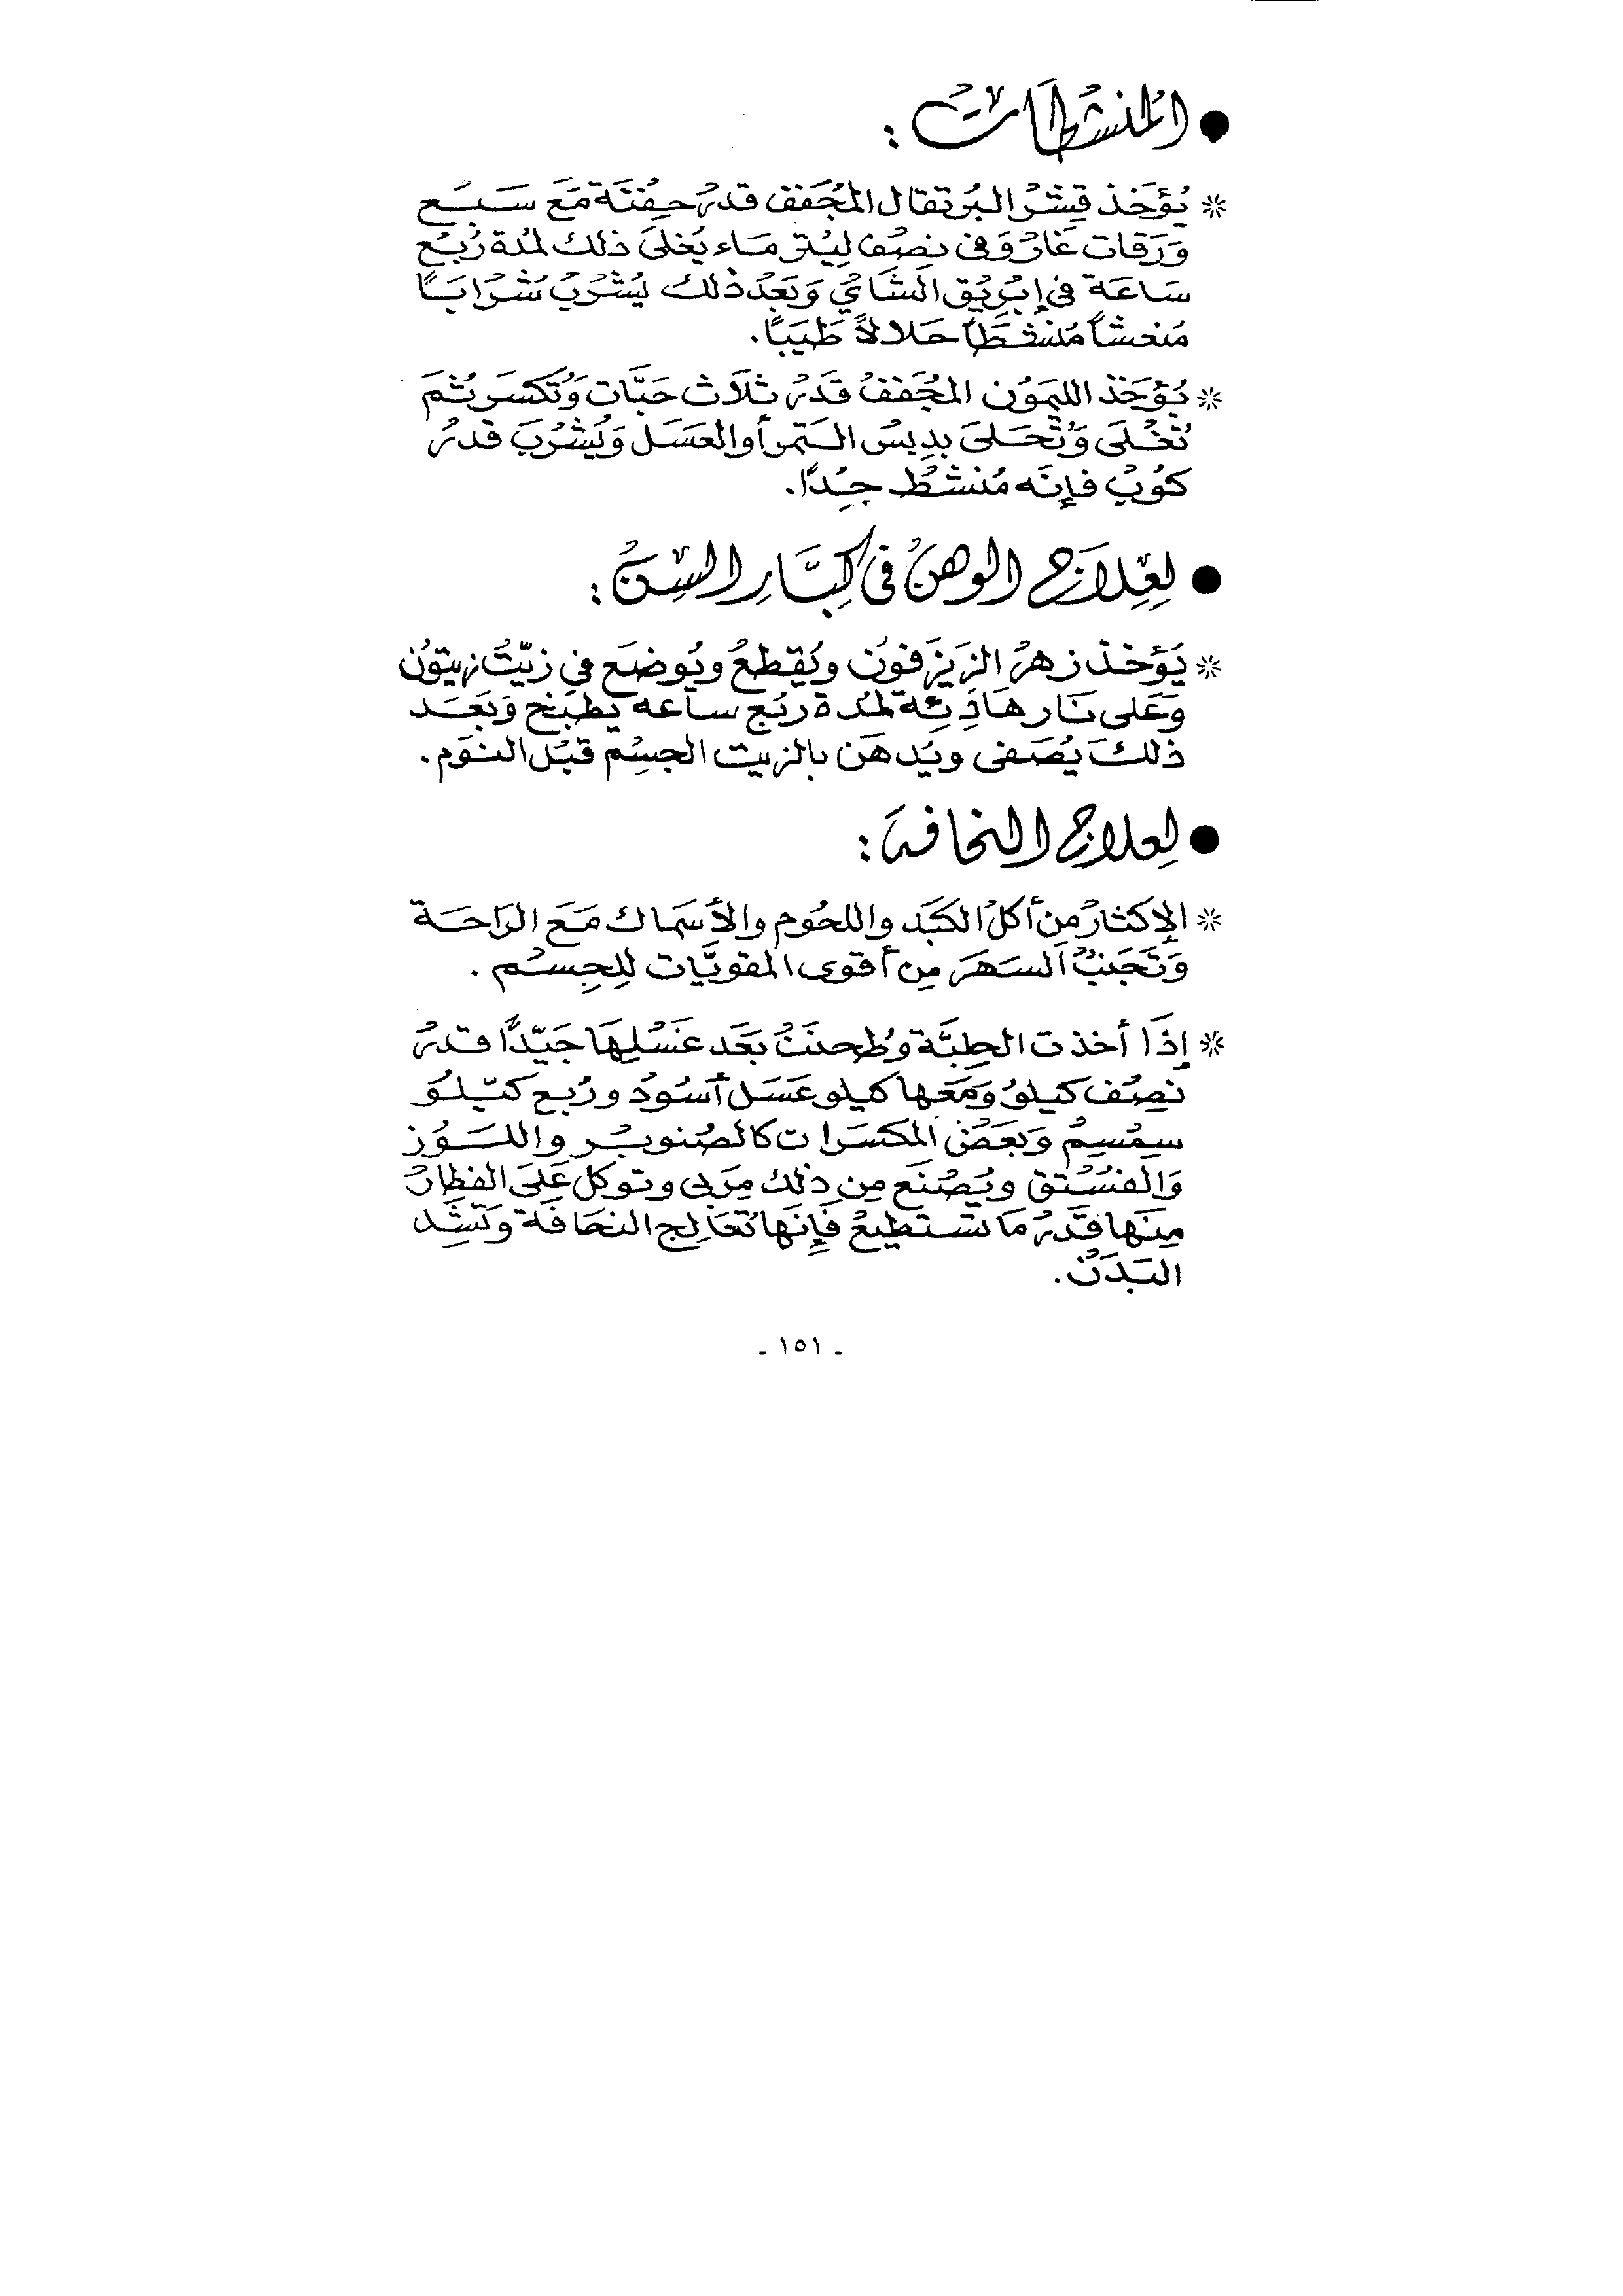 ● المنشطات :
* يُؤخَذ قِشْرُ البُرتقال المُجَفف قَدرُ حِفْنَة مَعَ سَبْع
وَرَقات غَارْ وَفى نصْف لِيْتر مَاء يُغلىَ ذلك لمُدة رُبْع
سَاعَة فى إبْرِيْق الشَايْ وَبَعْدُ ذلك يُشْرَبُ شَرَابَاً
مُنعشاً مُنشطَاً حَلالاً طَيبَاً.
* يُؤخَذ الليمَوُن المُجَففْ قَدَرُ ثلاَث حَبَّات وَتُكسَر ثُمَ
تُغْلىَ وَتُحَلىَ بدِبسْ التَمر أو العَسَل وَيُشْرَبَ قدرُ
كوُبْ فإنَه مُنشطْ جِدًا.
● لِعِلاَج الوهنْ فى كِبَّارِ السِنْ :
* يَؤْخذ زهرُ الزَيزَفونْ ويُقطعُ ويُوضَع فيِ زيّتْ زيتوُن
وَعَلى نَار هَادِئِة لمدة ربُع ساعه يطبَخ وَبَعَد
ذلكَ يُصَفى ويُدهَن بالزيت الجسِم قبْل النوَم.
● لِعلاج النحافه :
* الإكثارْ من أكلْ الكبَد واللحُوم والأسَماك مَعَ الرَاحَة
وَتَجَنبْ السَهَرَ مِن أقوى المقويَّات لِلجِسْم .
* إذَا أخذت الحِلبَّة وطُحنَتْ بَعَد غَسْلِهَا جَيّدًا قدرُ
نصِفْ كيلوُ وَمَعَها كيلو عَسَل أسْوُد ورُبع كيّلوَ
سِمْسِمْ وَبَعَضْ المكسَرات كالصُنوبرْ واللَوُز
وَالفسْتق ويُصْنَع مِن ذلكَ مِرَبى وتوكل عَلىَ الفطارْ
مِنَها قَدَرُ مَا تستطيعْ فَإِنَها تُعَالِج النحَافَة وتَشِّد
البَدَنْ.
- ١٥١ -